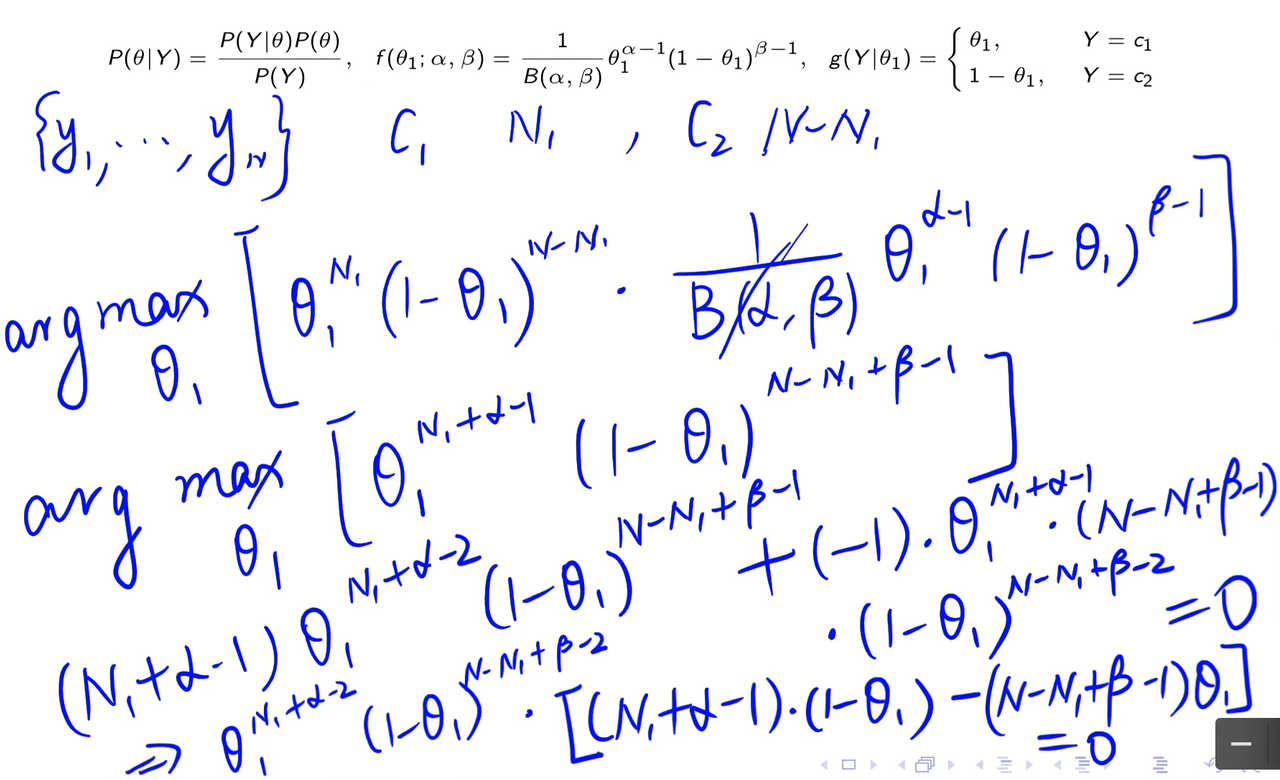 P(θ|Y) = P(Y|θ)P(θ) / P(Y), f(θ₁; α, β) = 1 / B(α, β) θ₁^{α−1}(1 − θ₁)^{β−1}, g(Y|θ₁) = { θ₁, Y = c₁
1 − θ₁, Y = c₂
{y₁, ⋯, y_N} C₁ N₁ , C₂ N−N₁
arg max θ₁ [ θ₁^{N₁} (1−θ₁)^{N−N₁} · 1 / B(α, β) θ₁^{α−1} (1−θ₁)^{β−1} ]
arg max θ₁ [ θ₁^{N₁+α−1} (1−θ₁)^{N−N₁+β−1} ]
(N₁+α−1) θ₁^{N₁+α−2} (1−θ₁)^{N−N₁+β−1} + (−1) · θ₁^{N₁+α−1} · (N−N₁+β−1)
· (1−θ₁)^{N−N₁+β−2} = 0
⇒ θ₁^{N₁+α−2} (1−θ₁)^{N−N₁+β−2} · [(N₁+α−1)·(1−θ₁) − (N−N₁+β−1)θ₁]
= 0